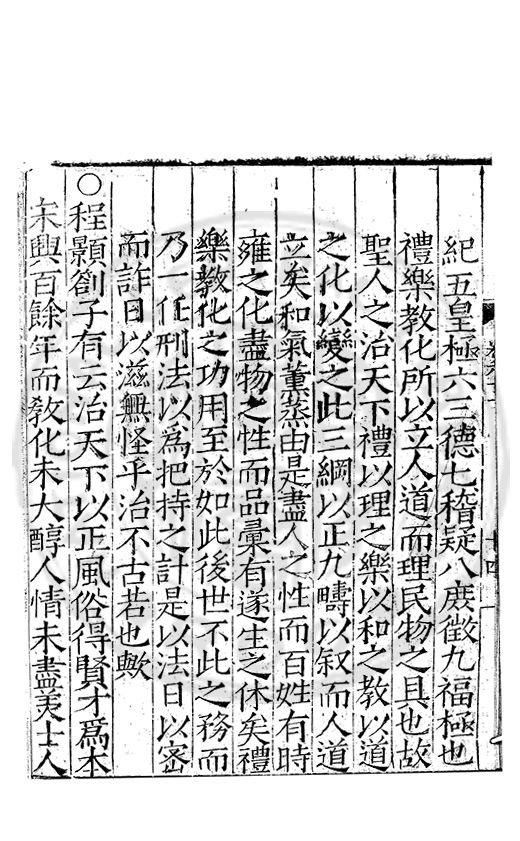 紀五皇極六三德七稽疑八庶徵九福極也
禮樂教化所以立人道而理民物之具也故
聖人之治天下禮以理之樂以和之教以道
之化以變之此三綱以正九疇以叙而人道
立矣和氣薰蒸由是盡人之性而百姓有時
雍之化盡物之性而品彙有遂生之休矣禮
樂教化之功用至於如此後世不此之務而
乃一任刑法以爲把持之計是以法日以密
而詐日以滋無怪乎治不古若也歟
○程顥劄子有云治天下以正風俗得賢才爲本
宋興百餘年而教化未大醇人情未盡美士人